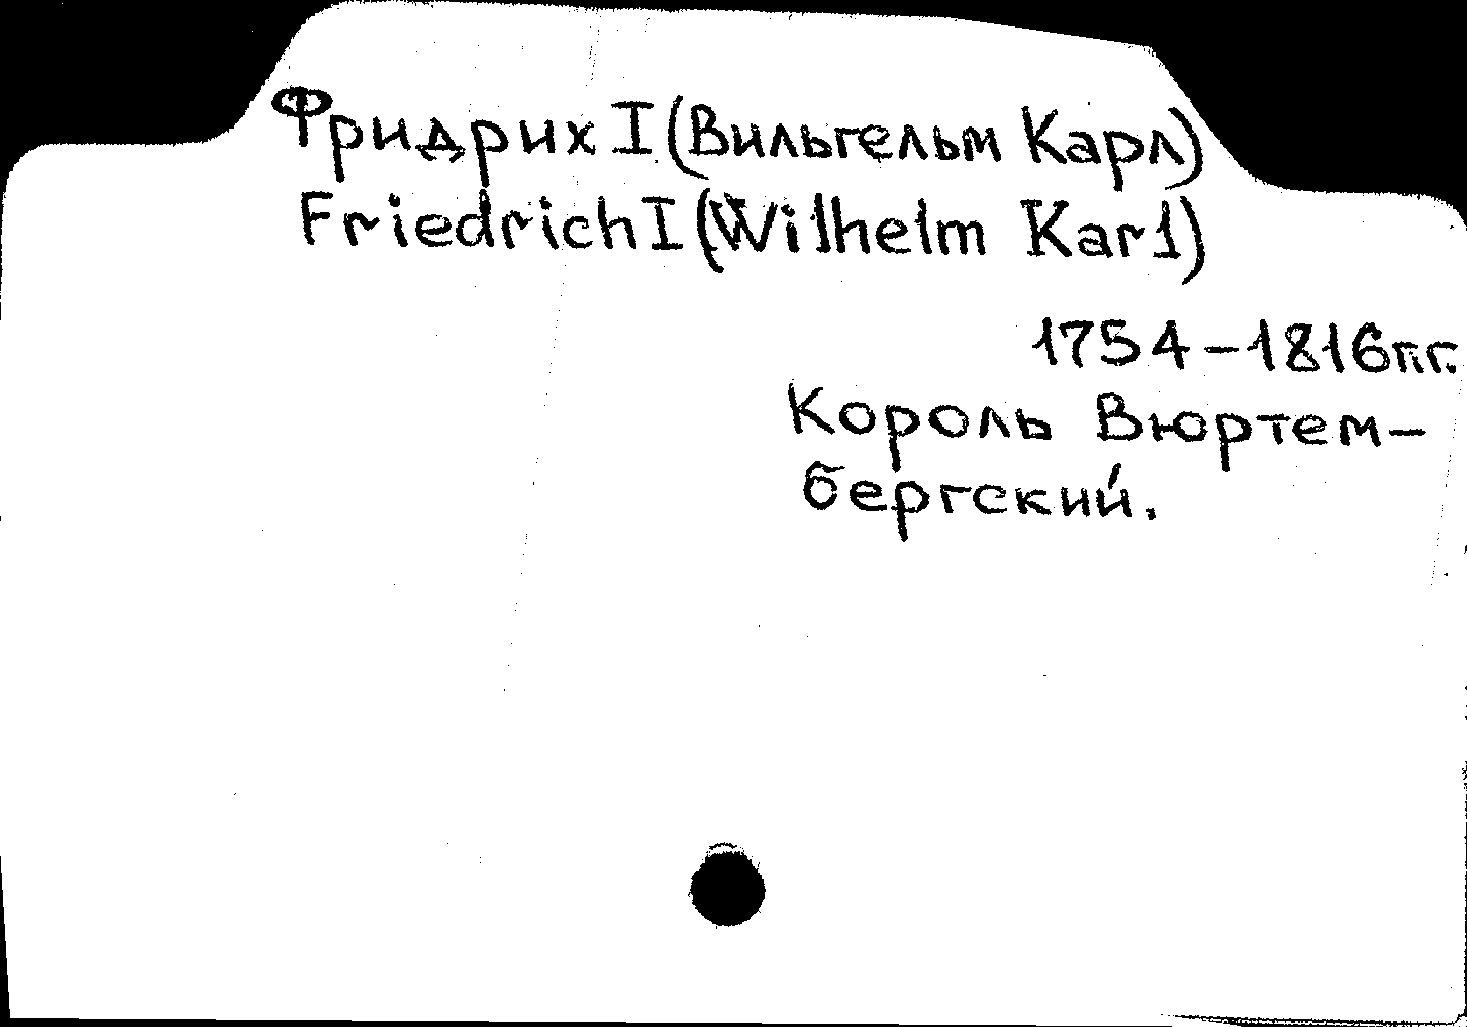 Фридрих I (Вильгельм Карл)
Friedrich I (Wilhelm Karl)
1754-1816гг.
Король Вюртем-
бергский.